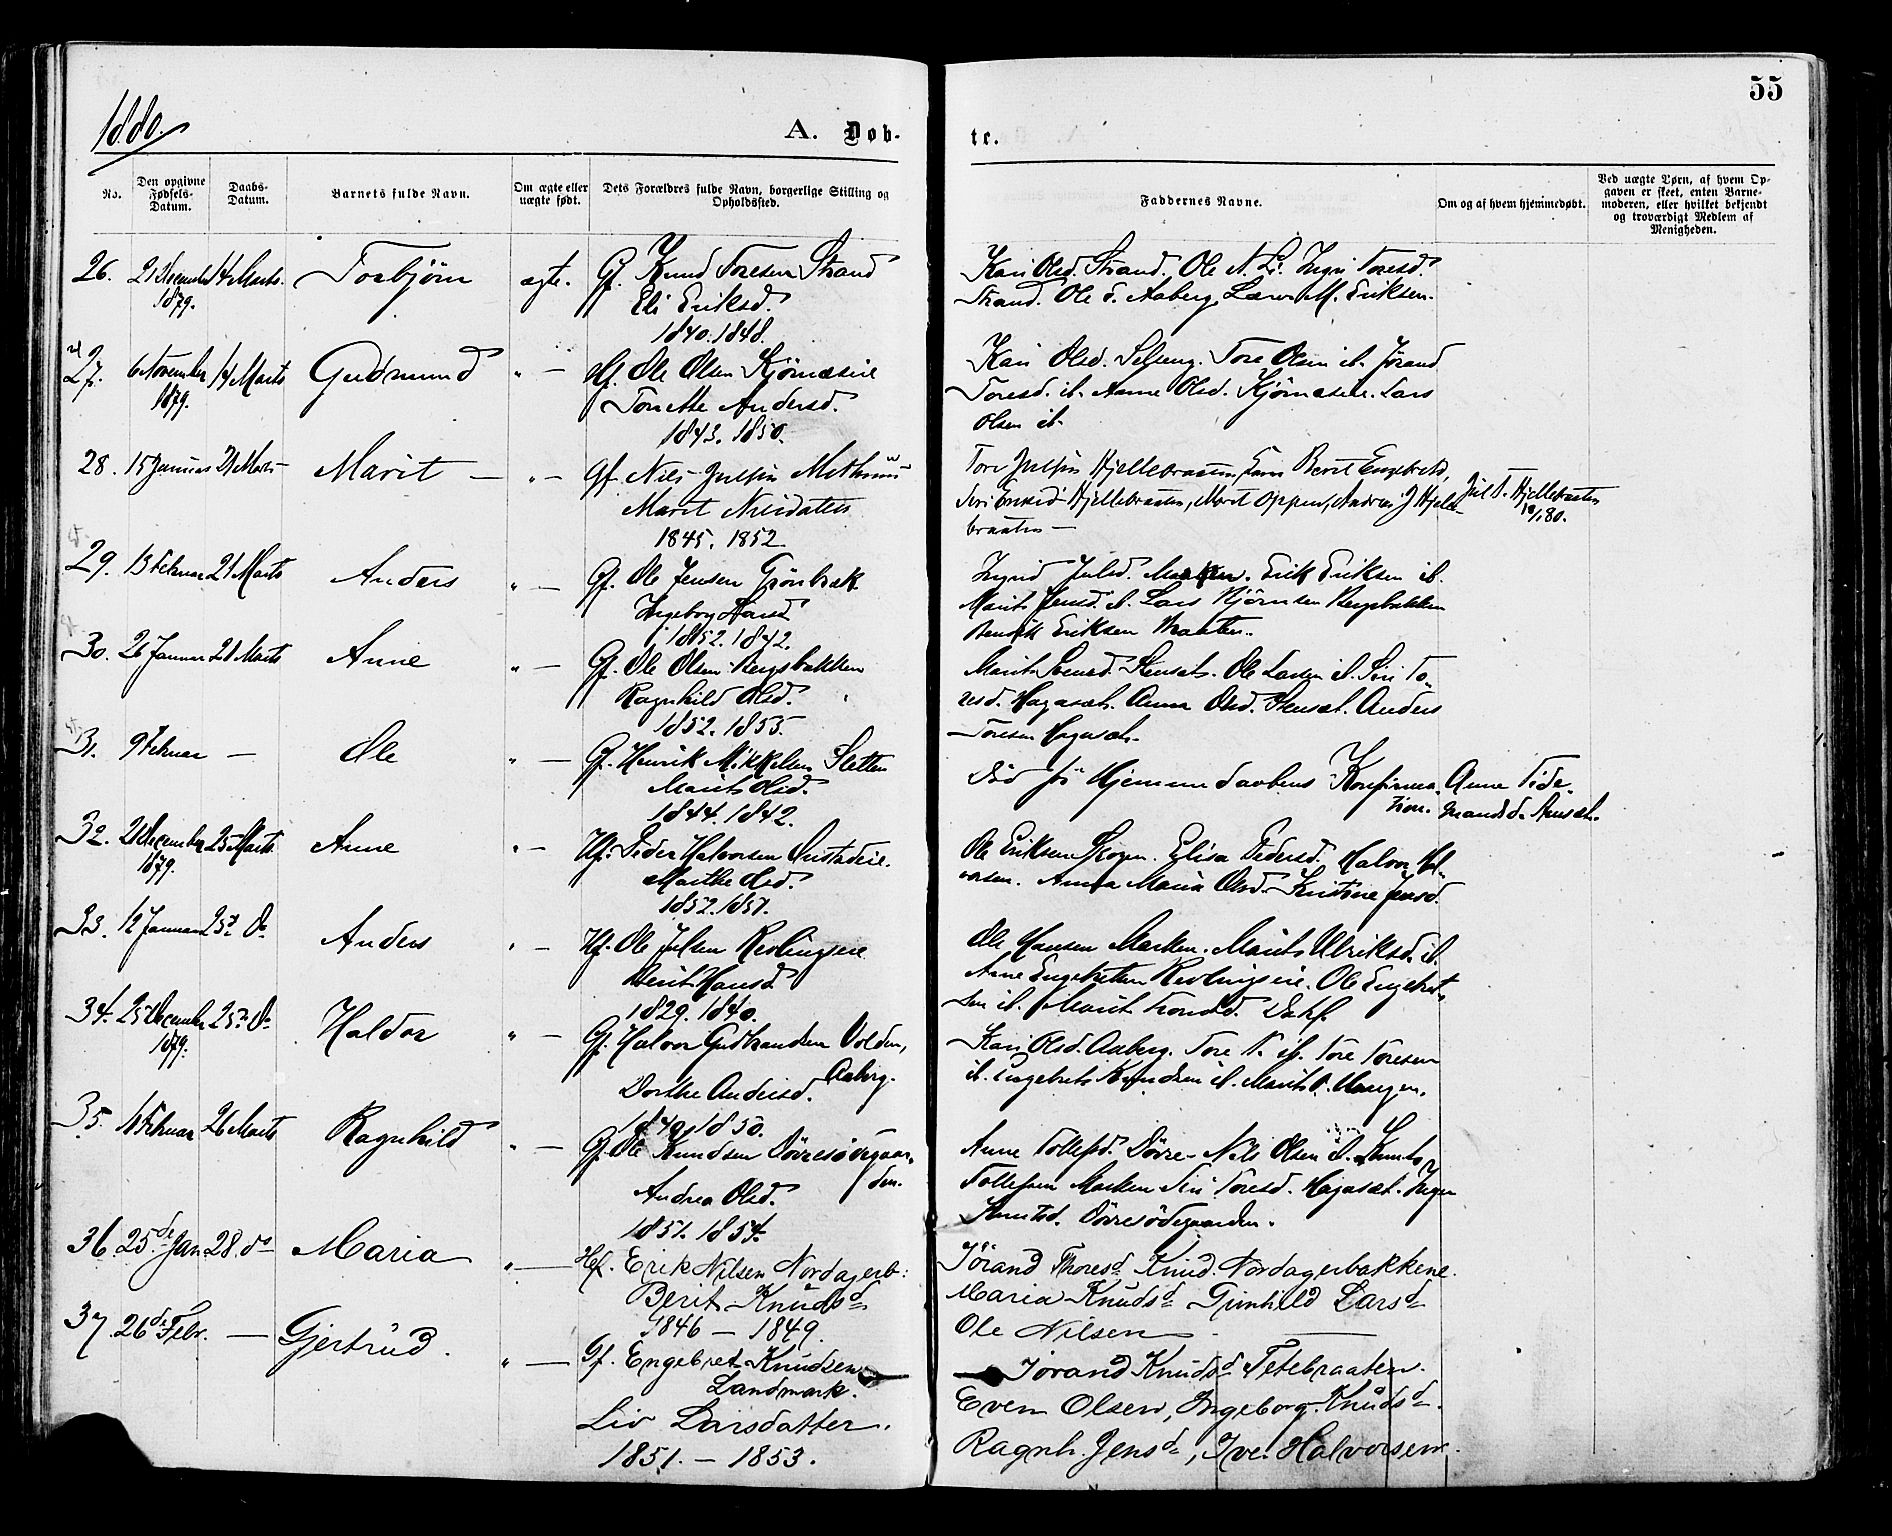 55
1880.
A. Døb-
te.
No.
Den opgivne Fødsels-Datum.
Daabs-Datum.
Barnets fulde Navn.
Om ægte eller uægte født.
Dets Forældres fulde Navn, borgerlige Stilling og Opholdssted.
Faddernes Navne.
Om og af hvem hjemmedøbt.
Ved uægte Børn, af hvem Opgaven er skeet, enten Barnemoderen, eller hvilket bekjendt og troværdigt Medlem af Menigheden.
26. 21 December 14 Marts. Torbjörn ægte. Gf. Knud Toresen Strand
1879. Eli Eriksd.
1840. 1848.
Kari Olsd. Strand. Ole N. Ingri Toresd.
Strand. Ole E. Aaberg, M. Eriksen.
27. 6 November 14 Marts Gudmund " — Ole Olsen
1879. Andersd.
1843. 1850.
Kari Olsd. Tore Olsen ib. Jørand
Toresd. ib. Anne Olsd. Lars
Olsen ib.
28. 15 Januar 21 Marts Marit — " — Gf. Nils
Marit Nilsdatter
1845. 1852.
Tore Hjellebraaten, Berit Engebretsd,
Hjellebraaten, Marit Oppen, Andreas J Hjelle-
braaten —
T. Hjellebraaten
80.
29. 13 Februar 21 Marts Anders " — Gf. Ole Jensen Grönbræk.
Ingeborg Larsd
1852. 1842.
Ingrid Julsd. Moen. Erik Eriksen ib.
Marit Jensd. ib. Lars Bjørnsen Bergsbakken
Eriksen Braaten.
30. 26 Januar 21 Marts Anne " — Gf. Ole Olsen Bergsbakken
Ragnhild Olsd.
1852. 1855.
Marit Svensd. Stensæt. Ole Larsen ib. Siri To-
resd. Hagasæt. Anna Olsd. Stensæt. Anders
Toresen Hagasæt.
31. 9 Februar — Ole " — Gf. Henrik Mikkelsen Sletten
Marit Olsd.
1844. 1842.
Död för Hjemmedaabens Konfirma-
tion.
Anne Tide-
mandsd.
32. 21 December 25 Marts. Anne " — Hf. Peder Halvorsen
1879. Marthe Olsd.
1852. 1857.
Ole Eriksen Skogen. Elisa Pedersd. Halvor Hal-
vorsen. Anna Maria Olsd. Kristine Jensd.
33. 12 Januar 25 do Anders " — Hf. Ole Julsen
Berit Hansd
1829. 1840.
Ole Hansen Marken. Marit Ulriksd. ib.
Anne Ole Engebret-
sen ib. Marit Trondsd. Dahl.
34. 25 December 25 do Haldor " — Gf. Halvor Gudbrandsen Volden,
1879. Aaberg.
Dorthe Andersd.
1840. 1850.
Kari Olsd. Aaberg. Tore T. ib. Tore Toresen
ib. Engebret Knudsen ib. Marit O. Haugen.
35. Februar 26 Marts Ragnhild " — Gf. Ole Knudsen Dövresödegaar-
den.
Andrea Olsd.
1851. 1854.
Anne Tollefsd. Dövre. Nils Olsen ib. Knut
Tollefsen Marken Siri Toresd. Hagasæt.
Knutsd. Dövresödegaarden.
36. 25de Jan 28. do Maria " — Hf. Erik Nilsen Nordagerb:
Berit Knudsd
1846 — 1849.
Jörand Thoresd Knud. Nordagerbakkene.
Maria Knudsd Gunhild Larsd
Ole Nilsen
37. 26de Febr. — Gjertrud. " — Gf. Engebret Knudsen
Landmark.
Liv Larsdatter.
1851. — 1853.
Jörand Knudsd Tetebraaten.
Even Olsen, Ingeborg Knudsd.
Ragnh. Jensd, Iver Halvorsen.